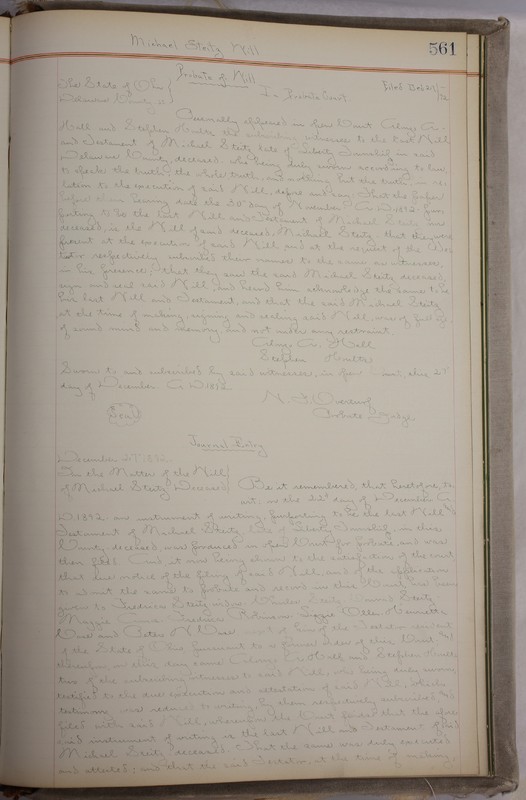 Michael Steitz Will
561
Probate of Will
The State of Ohio
Delaware County, ss
In Probate Court
Filed Dec 27/92
Personally appeared in open Court
Hall and Stephen Hoults the subscribing witnesses to the Last Will
and Testament of Michael Steitz late of Liberty Township in said
Delaware County, deceased who being duly sworn according to law
to speak the truth, the whole truth, and nothing but the truth, in re-
lation to the execution of said Will, depose and say, That the paper
before them bearing date the 30th day of November A. D. 1892, pur-
porting to be the last Will and Testament of Michael Steitz now
deceased, is the Will of said deceased, Michael Steitz, that they were
present at the execution of said Will, and at the request of the Tes-
tator respectively subscribed their names to the same as witnesses,
in his presence; that they saw the said Michael Steitz, deceased,
sign and seal said Will, and heard him acknowledge the same to be
his last Will and Testament, and that the said Michael Steitz
at the time of making, signing and sealing said Will, was of full age
of sound mind and memory, and not under any restraint.
Hall
Stephen Hoults
Sworn to and subscribed by said witnesses, in open Court, this 27th
day of December A. D. 1892
Seal
Probate Judge
Journal Entry
December 27th 1892
In the Matter of the Will
of Michael Steitz Deceased
Be it remembered, that heretofore, to
wit: on the 22d day of December A.
D. 1892 an instrument of writing, purporting to be the last Will and
Testament of Michael Steitz late of Liberty Township, in this
County deceased, was produced in open Court for probate, and was
then filed. And it now being shown to the satisfaction of the court
that due notice of the filing of said Will, and of the application
to admit the same to probate and record in this Court has been
given to Fredrica Steitz widow,
Maggie
of the State of Ohio pursuant to a former order of this Court, and
thereupon on this day came Hall and Stephen Hoults
two of the subscribing witnesses to said Will, who being duly sworn
testified to the due execution and attestation of said Will, which
testimony was reduced to writing, by them respectively subscribed and
filed with said Will, whereupon the Court finds that the afore-
said instrument of writing is the last Will and Testament of said
Michael Steitz deceased. That the same was duly executed
and attested; and that the said Testator, at the time of making,